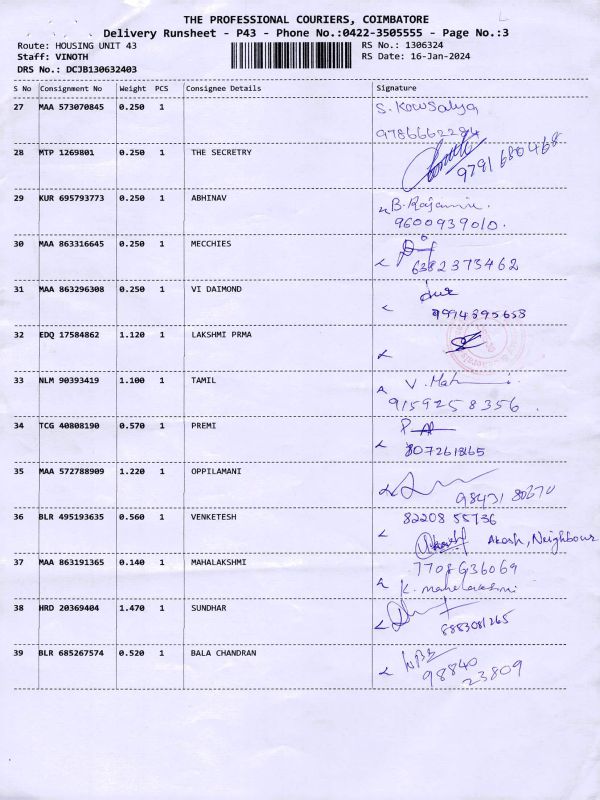 THE PROFESSIONAL COURIERS, COIMBATORE
Delivery Runsheet - P43 - Phone No.:0422-3505555 - Page No.:3
Route: HOUSING UNIT 43
RS No.: 1306324
Staff: VINOTH
RS Date: 16-Jan-2024
DRS No.: DCJB130632403
S No Consignment No Weight PCS Consignee Details Signature
27 MAA 573070845 0.250 1 S. Kowsalya
9786662284
28 MTP 1269801 0.250 1 THE SECRETRY
9791 680468
29 KUR 695793773 0.250 1 ABHINAV B. Rajamni
9600939010.
30 MAA 863316645 0.250 1 MECCHIES
6382373462
31 MAA 863296308 0.250 1 VI DAIMOND
9994895658
32 EDQ 17584862 1.120 1 LAKSHMI PRMA
33 NLM 90393419 1.100 1 TAMIL V. Mah
9159258356.
34 TCG 40808190 0.570 1 PREMI
8072618165
35 MAA 572788909 1.220 1 OPPILAMANI
98431 80670
36 BLR 495193635 0.560 1 VENKETESH 82208 55736
Akash, Neighbour
37 MAA 863191365 0.140 1 MAHALAKSHMI 7708936069
K. mahalakshmi
38 HRD 20369404 1.470 1 SUNDHAR
8883081265
39 BLR 685267574 0.520 1 BALA CHANDRAN
98840
23809